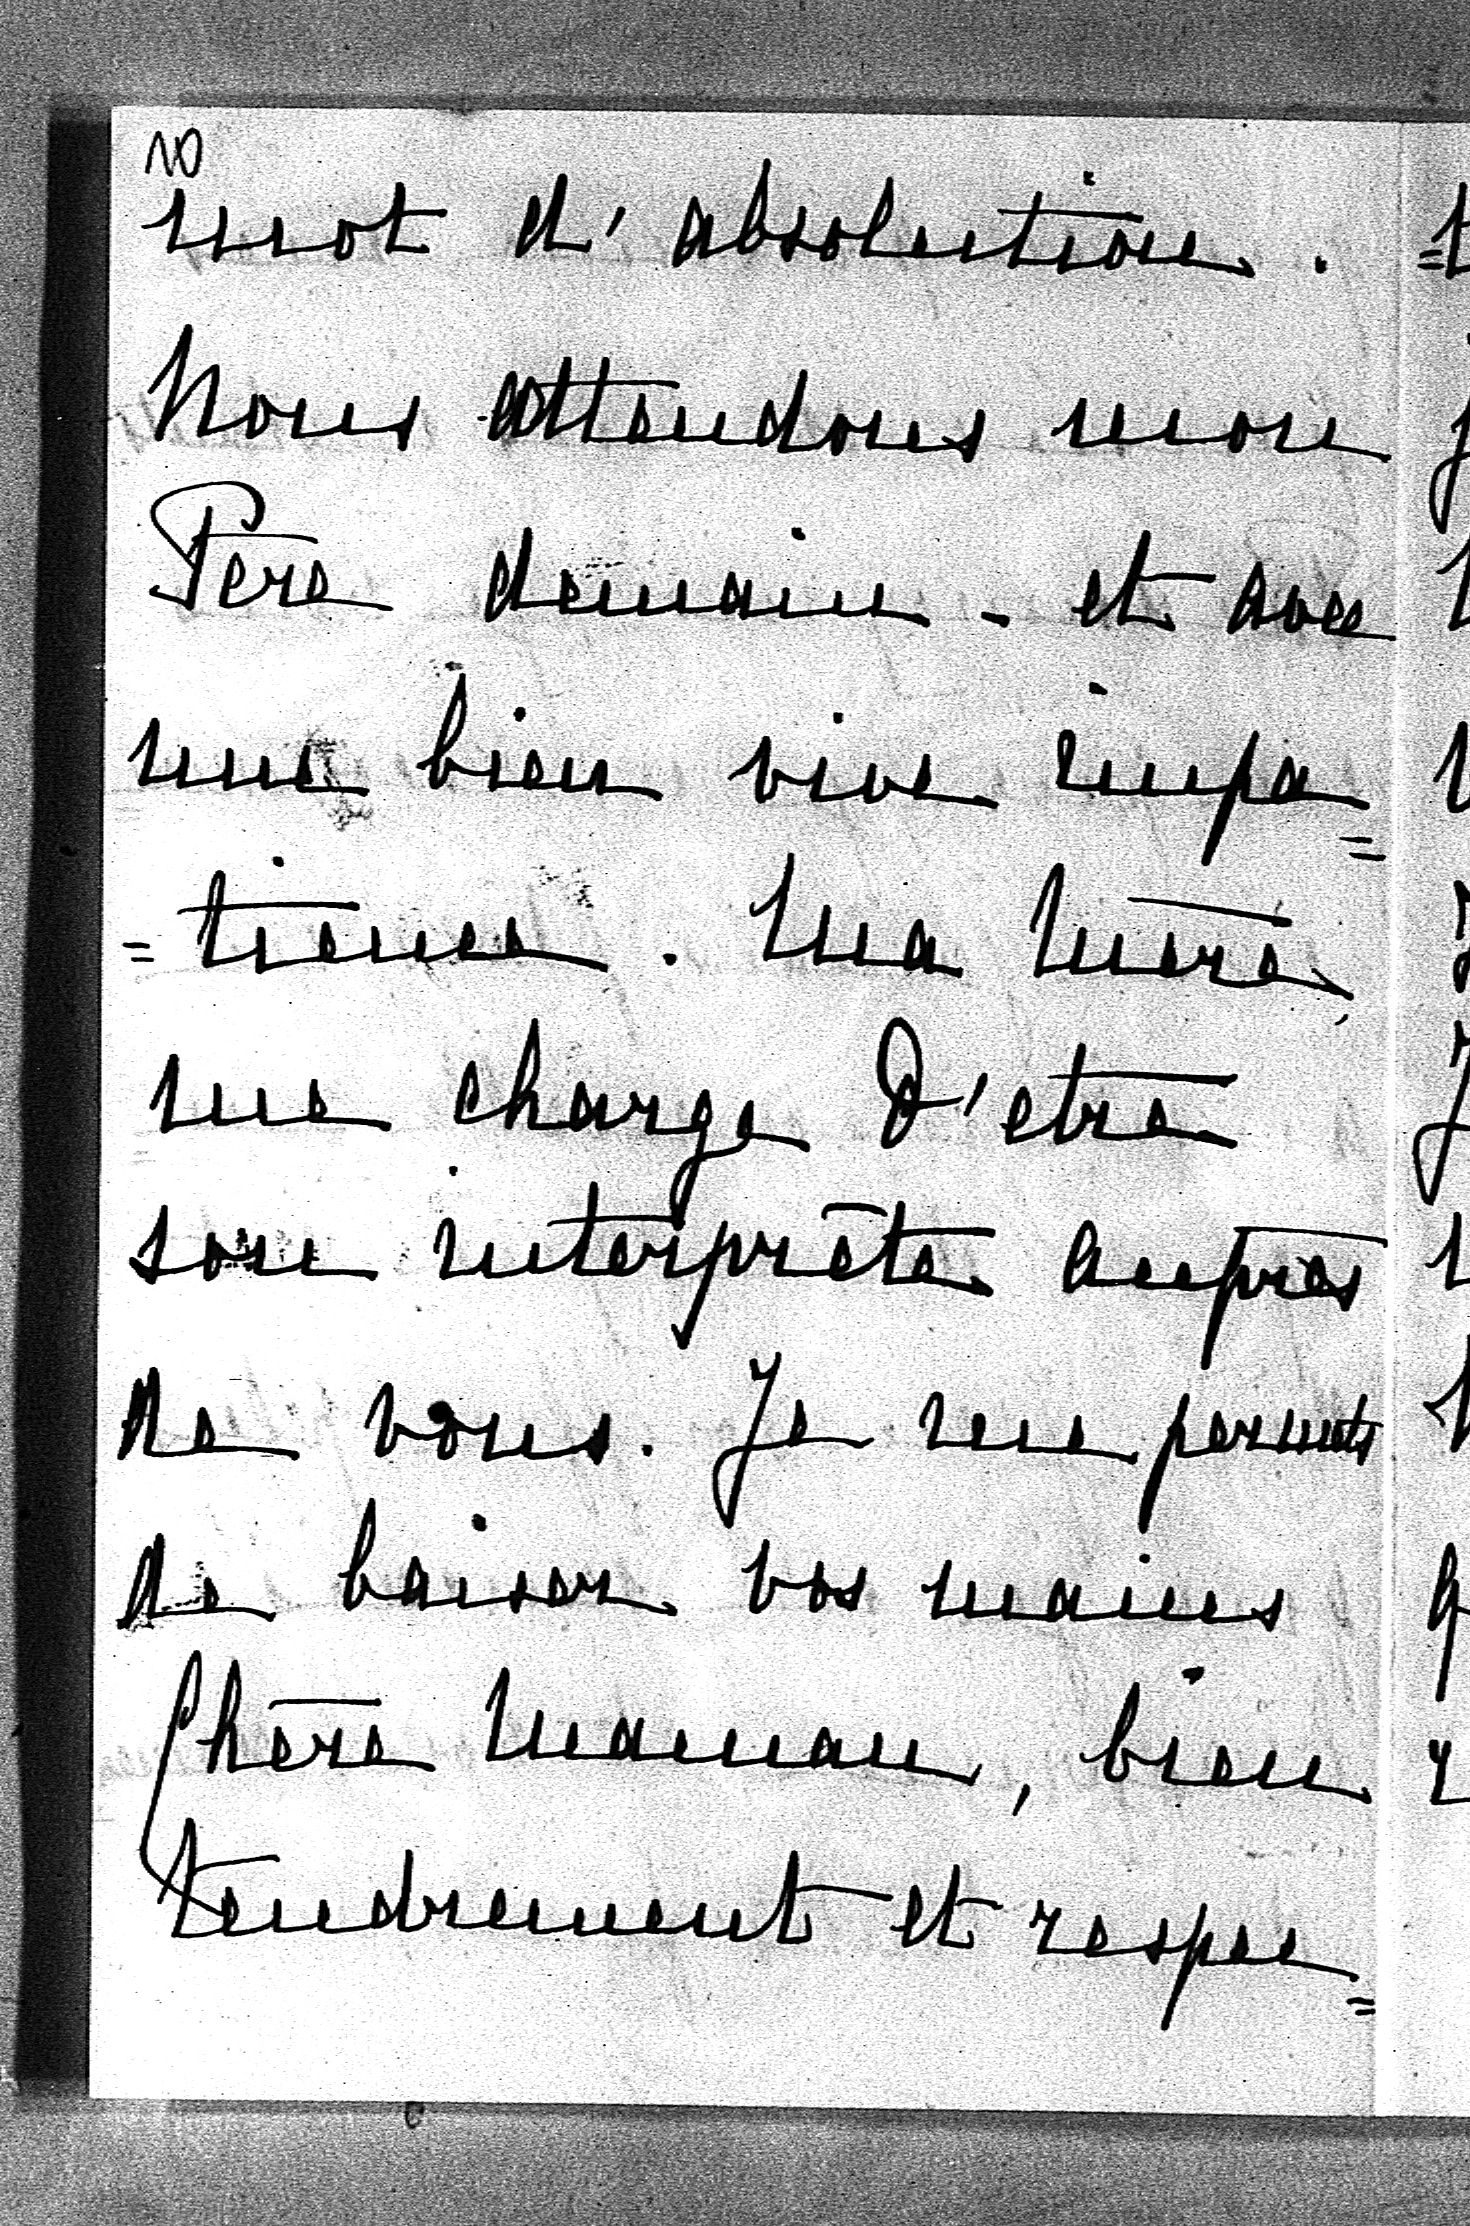 10
mot d'absolution.
Nous attendons mon
Père demain - et avec
une bien vive impa=
=tience. Ma Mère,
me charge d'être
son interprète auprès
de vous. Je me permets
de baiser vos mains
Chère Maman, bien
tendrement et respec=